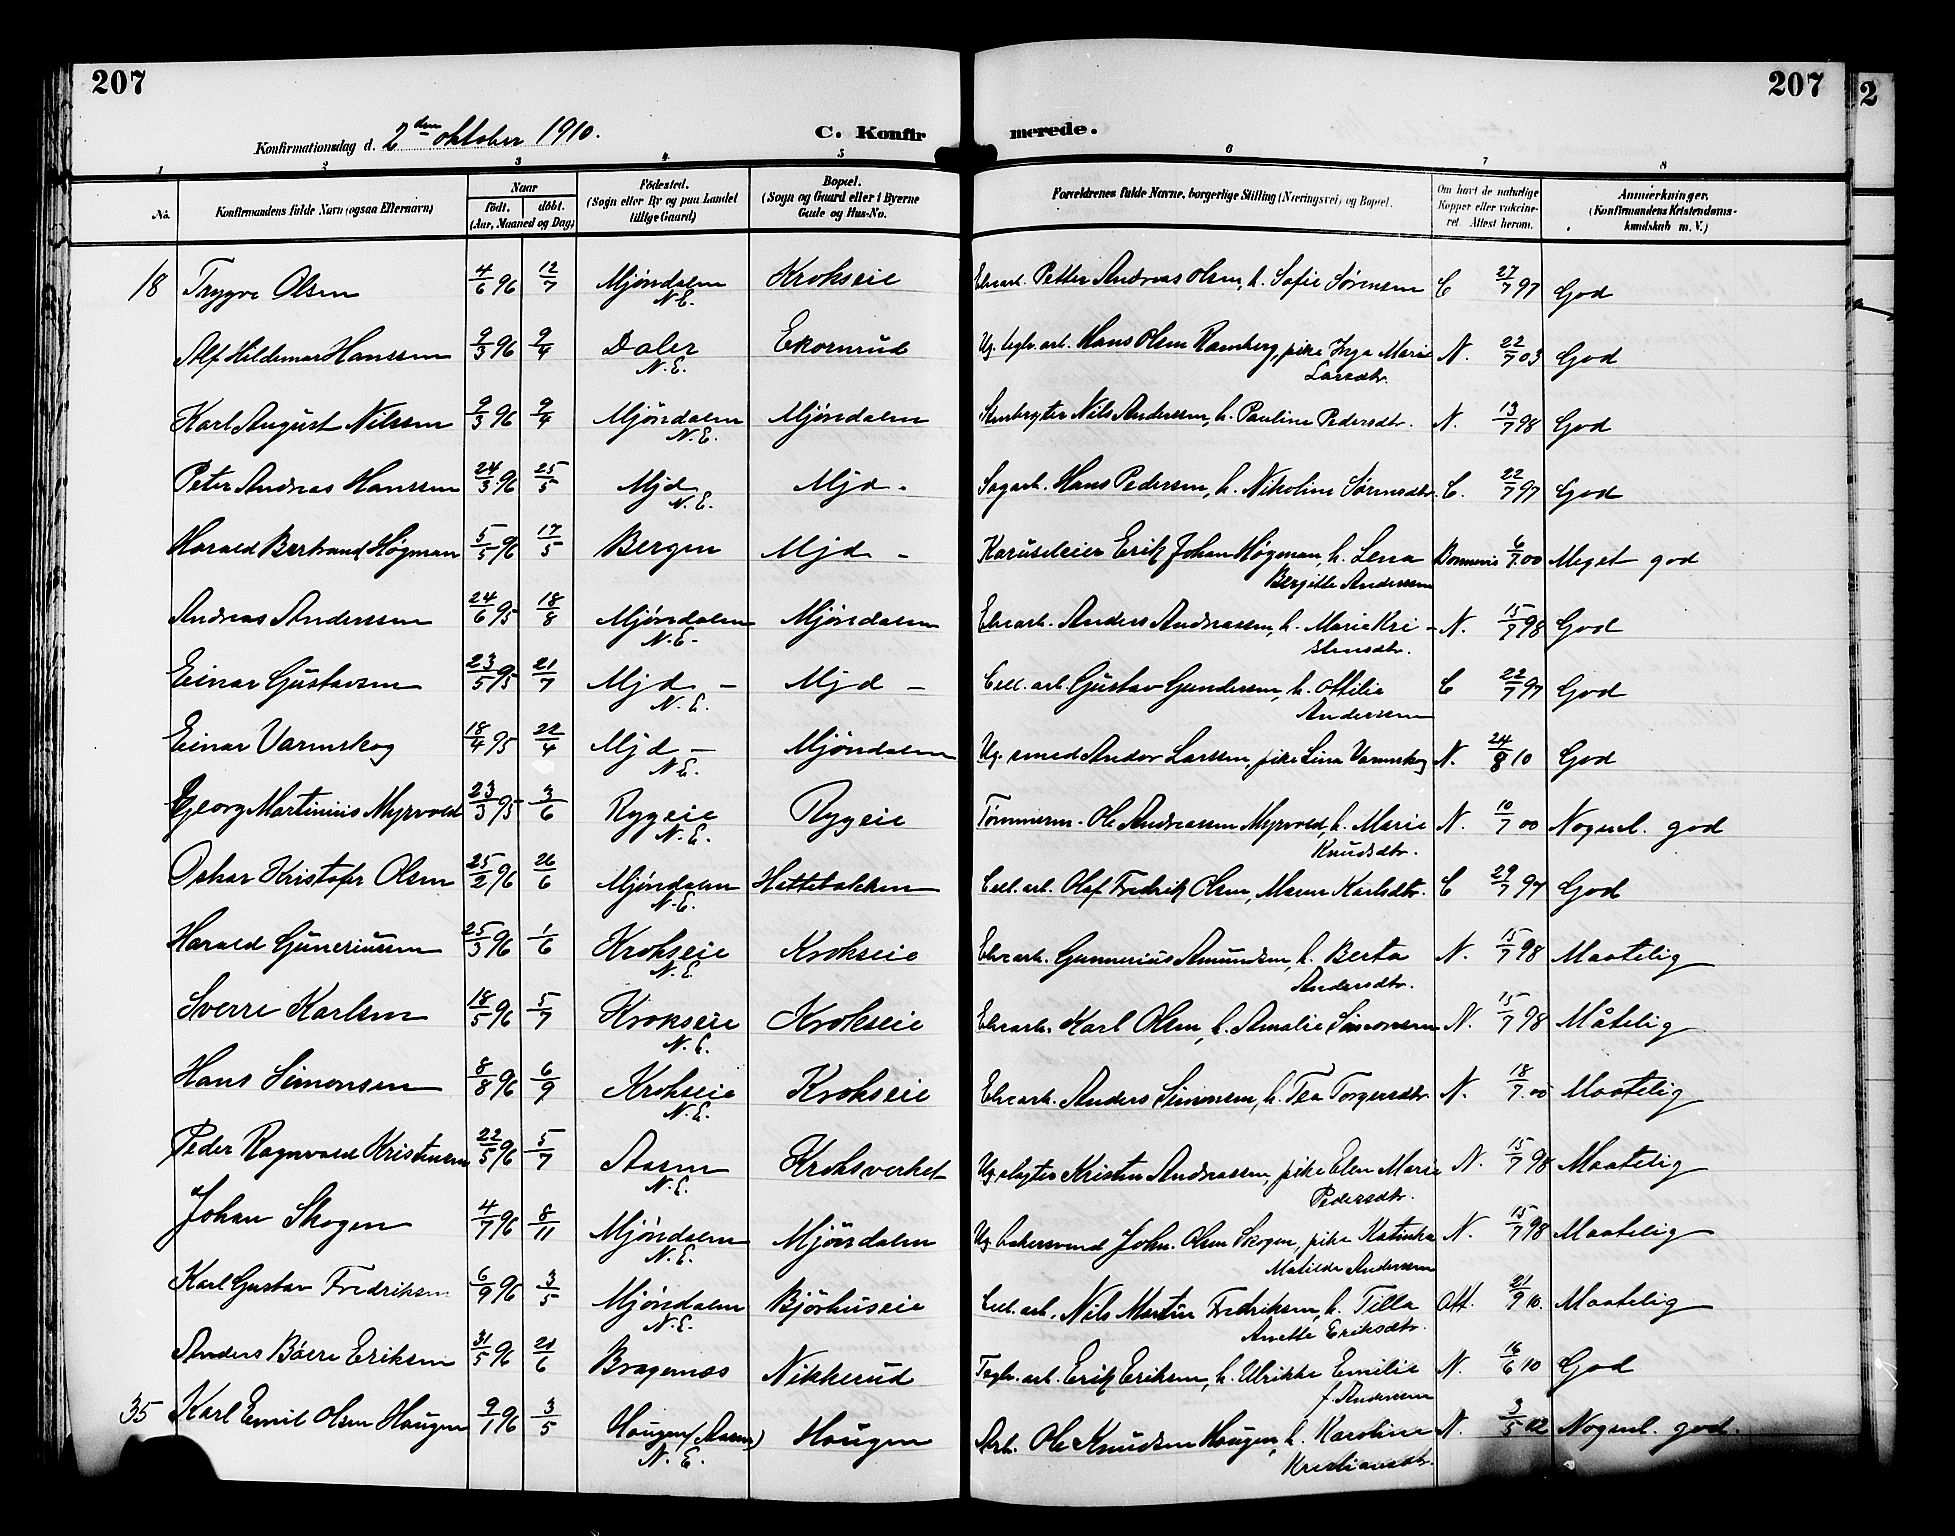 207
207
2
Konfirmationsdag d. 2den oktober 1910.
C. Konfirmerede.
1 2 3 4 5 6 7 8
No.
Konfirmandens fulde Navn (ogsaa Efternavn)
Naar
födt. döbt.
(Aar, Maaned og Dag)
Födested.
(Sogn eller By og paa Landet
tillige Gaard)
Bopæl.
(Sogn og Gaard eller i Byerne
Gade og Hus-No.
Forældrenes fulde Navne, borgerlige Stilling (Næringsvei) og Bopæl.
Om havt de naturlige
Kopper eller vakcine-
ret Attest herom.
Anmærkninger,
(Konfirmandens Kristendoms-
kundskab m. V.)
18 Trygve Olsen 4/6 96 12/7 Mjøndalen N.E. Krokseie Elvearb. Petter Andreas Olsen, h. Sofie Sørensen C 27/7 97 God
Alf Hildemar Hanssen 9/3 96 9/4 Daler N.E. Ekornrud Ug. teglv.arb. Hans Olsen Ramberg, pike Inga Marie Larsdtr. N. 22/7 03 God
Karl August Nilssen 9/3 96 9/4 Mjöndalen N.E. Mjöndalen Stenbryter Nils Anderssen, h. Pauline Pedersdtr. N. 13/7 98 God
Peter Andreas Hanssen 24/3 96 25/5 Mjd N.E. Mjd - Sagarb. Hans Pedersen, h. Nikoline Sørensdtr. C. 22/7 97 God
Harald Bertrand Høgman 5/5 96 17/5 Bergen Mjd - Karuseleier Erik Johan Høgman, h. Lena Bergitte Anderssen 6/7.00 Meget god
Andreas Anderssen 24/6 95 18/8 Mjöndalen N.E. Mjöndalen Elvearb. Anders Andreassen, h. Marie Kristensdtr. N. 15/7 98 God
Einar Gustavsen 23/5 95 21/7 Mjd - N.E. Mjd - Cell. arb. Gustav Gundersen, h. Otilie Anderssen C 22/7 97 God
Einar Varmskog 18/4 95 22/4 Mjd - N.E. Mjöndalen Ug. smed Andor Larssen, pike Lina Varmskog N. 24/8 10 God
Georg Martinius Myrvold 23/3 95 3/6 Rygeie N.E. Rygeie Tømmerm. Ole Andreassen Myrvold, h. Marie Knudsdtr. N. 10/7 00 Nogenl. god
Oskar Kristofer Olsen 25/2 96 26/6 Mjöndalen N.E. Hettebakken Cell. arb. Olaf Fredrik Olsen, Maren Karlsdtr. C 29/7 97 God
Harald Guneriussen 25/3 96 1/6 Krokseie N.E. Krokseie Elvearb. Gunnerius Amundsen, h. Berta Andersdtr. N. 15/7 98 Maatelig
Sverre Karlsen 18/5 96 5/7 Krokseie N.E. Krokseie Elvearb. Karl Olsen, h. Amalie Simonsen N. 15/7 98 Måtelig
Hans Simonsen 8/8 96 6/9 Krokseie N.E. Krokseie Elvearb. Anders Simonsen, h. Tea Torgersdtr. N. 18/7.00 Maatelig
Peder Ragnvald Kristensen 22/5 96 5/7 Aasen N.E. Kroksverket Ug. slagter Kristen Andreassen, pike Elen Marie Pedersdtr. N. 15/7 98 Maatelig
Johan Skogen 4/7 96 8/11 Mjöndalen N.E. Mjöndalen Ug. bakersvend John. Olsen Skogen, pike Katinka Matilde Anderssen N. 15/7 98 Maatelig
Karl Gustav Fredriksen 6/9 96 3/5 Mjöndalen N.E. Björhuseie Cell. arb. Nils Martin Fredriksen, h. Tilla Anette Eriksdtr. Att. 21/9 10. Maatelig
Anders Båsre Eriksen 31/5 96 21/6 Bragernæs Nikkerud Teglv. arb. Erik Eriksen, h. Ulrikke Emilie f. Anderssen N. 16/6 10 God
35 Karl Emil Olsen Haugen 9/1 96 3/5 Haugen (Aasen) N.E. Haugen Arb. Ole Knudsen Haugen, h. Karoline Kristiansdtr. N. 3/5 02 Nogenl. god.